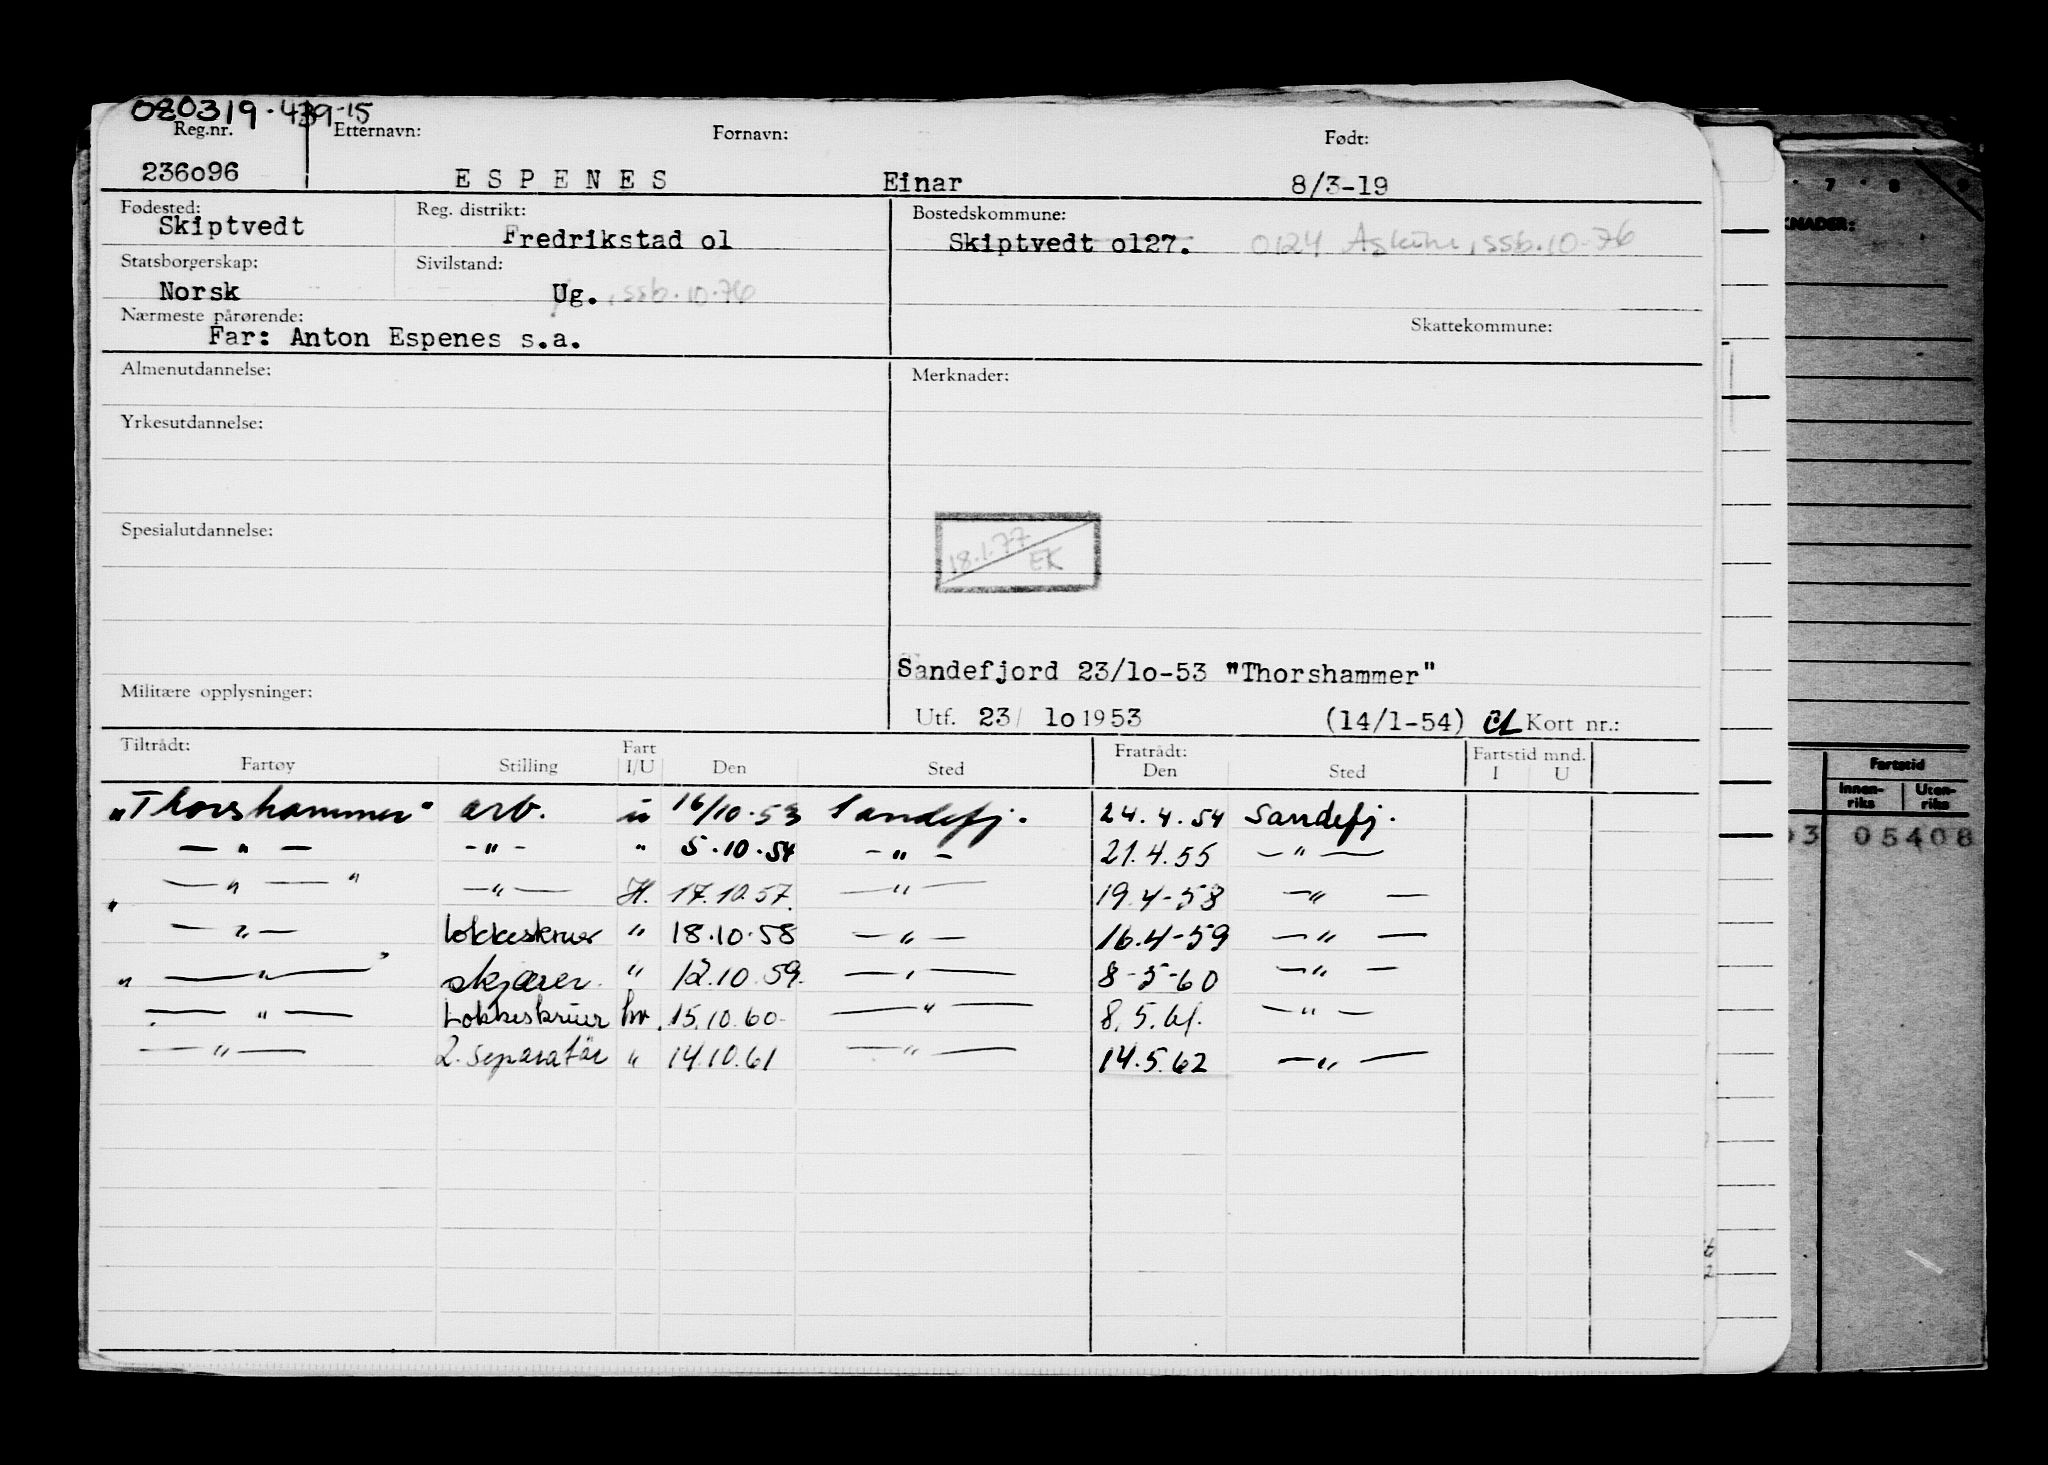 080319·439·15
Reg.nr. Etternavn: Fornavn: Født:
236o96 ESPENES Einar 8/3-19
Fødested: Reg. distrikt: Bostedskommune:
Skiptvedt Fredrikstad ol Skiptvedt ol27. 0124 Askim, ssb.10-76
Statsborgerskap: Sivilstand:
Norsk Ug. , ssb.10.76
Nærmeste pårørende: Skattekommune:
Far: Anton Espenes s.a.
Almenutdannelse: Merknader:
Yrkesutdannelse:
Spesialutdannelse:
18.1.77
EK
Sandefjord 23/lo-53 "Thorshammer"
Militære opplysninger:
Utf. 23/ lo 1953 (14/1-54) Kort nr.:
Tiltrådt: Fart Fratrådt: Fartstid mnd.
Fartøy Stilling I/U Den Sted Den Sted I U
"Thorshammer" arb. u 16/10.53 Sandefj. 24.4.54 Sandefj.
— " — - " - " 5.10.54 - " - 21.4.55 — " —
— " — " — " — H. 17.10.57. — " — 19.4-58 — " —
" — " — lokkeskruer " 18.10.58 — " — 16.4-59 — " —
" — " — skjærer. " 12.10.59. — " — 8-5-60 — " —
— " — Lokkeskruer hv. 15.10.60. — " — 8.5.61. — " —
— " — 2. separatør " 14.10.61 — " — 14.5.62 — " —
7 8 9
KNADER:
Fartstid
Innen-
riks
Uten-
riks
03 05408